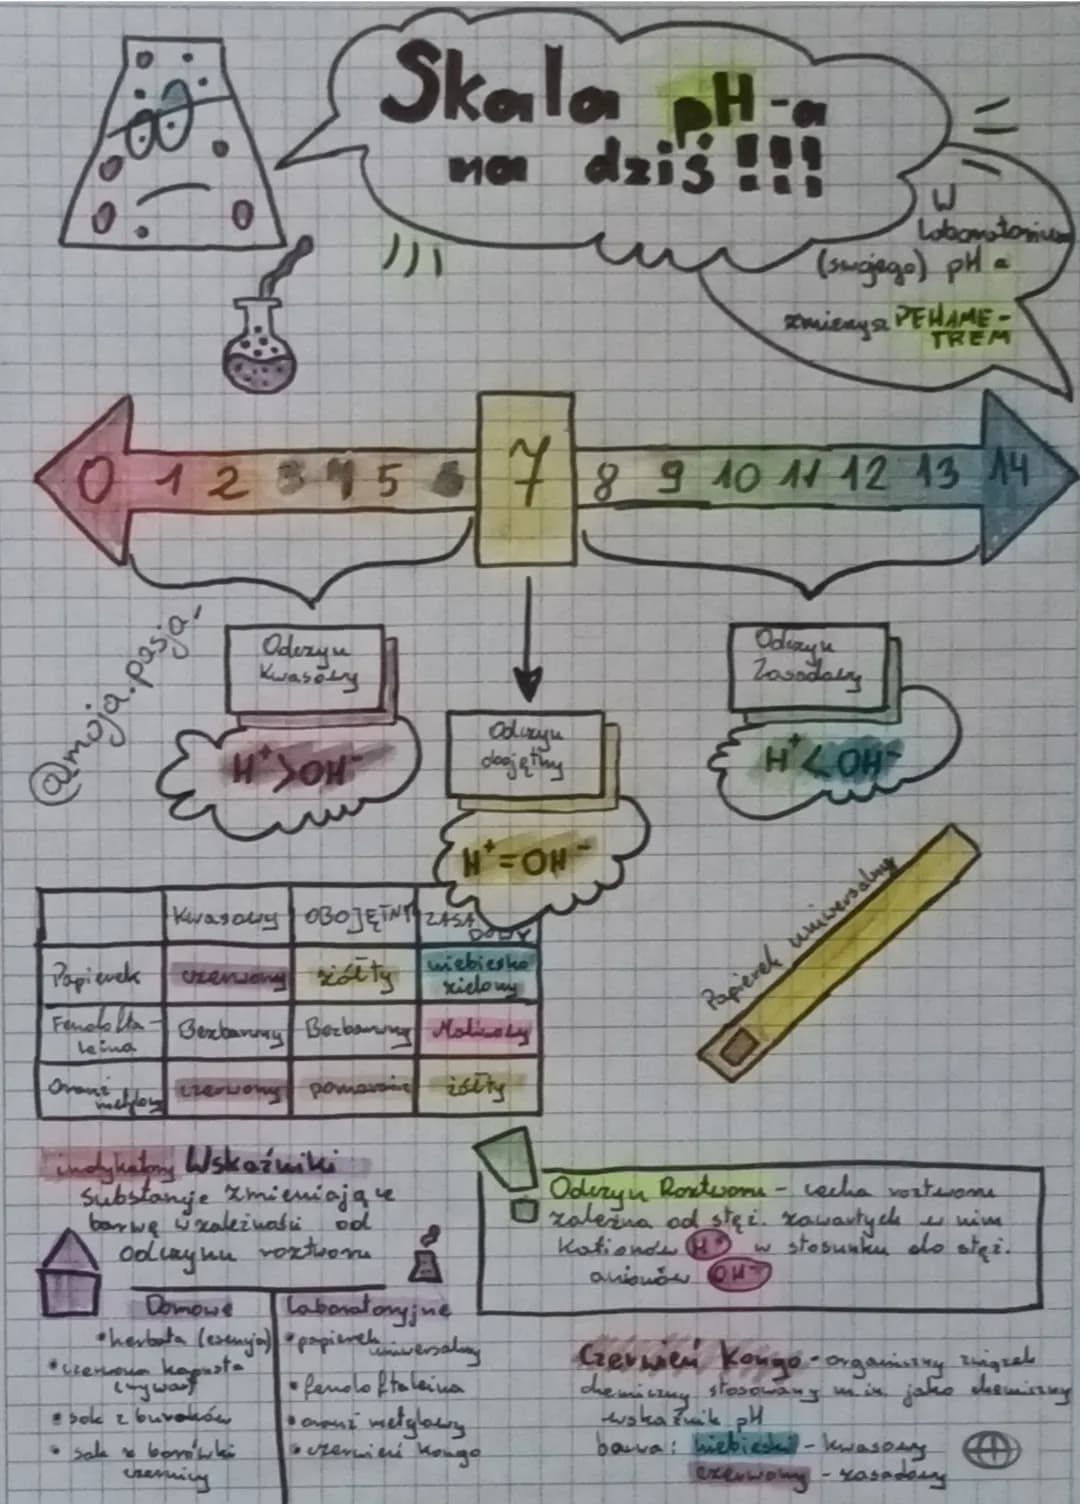 Skala pH-a
na dziś!!!
W
laboratorium
(swojego) pH a
zmierzysz PEHAME-
TREM
0 1 2 3 4 5 6 7 8 9 10 11 12 13 14
@moja.pasja!
Odczyn
Kwasowy
H⁺>OH⁻
Odczyn
obojętny
H⁺=OH⁻
Odczyn
Zasadowy
H⁺<OH⁻
Papierek uniwersalny
Kwasowy OBOJĘTNY ZASA
DOWY
Papierek czerwony żółty niebiesko
zielony
Fenolofta-
leina Bezbarwny Bezbarwny Malinowy
Oranż
metylowy czerwony pomarańcz żółty
indykatory Wskaźniki
substancje zmieniające
barwę w zależności od
odczynu roztworu
Domowe
• herbata (esencja)
• czerwona kapusta
(wywar)
• sok z buraków
• sok z borówki
czernicy
laboratoryjne
• papierek
uniwersalny
• fenoloftaleina
• oranż metylowy
• czerwień kongo
Odczyn Roztworu - cecha roztworu
zależna od stęż. zawartych w nim
Kationów H⁺ w stosunku do stęż.
anionów OH⁻
Czerwień Kongo - organiczny związek
chemiczny stosowany m.in. jako chemiczny
wskaźnik pH
barwa: niebieski - kwasowy
czerwony - zasadowy